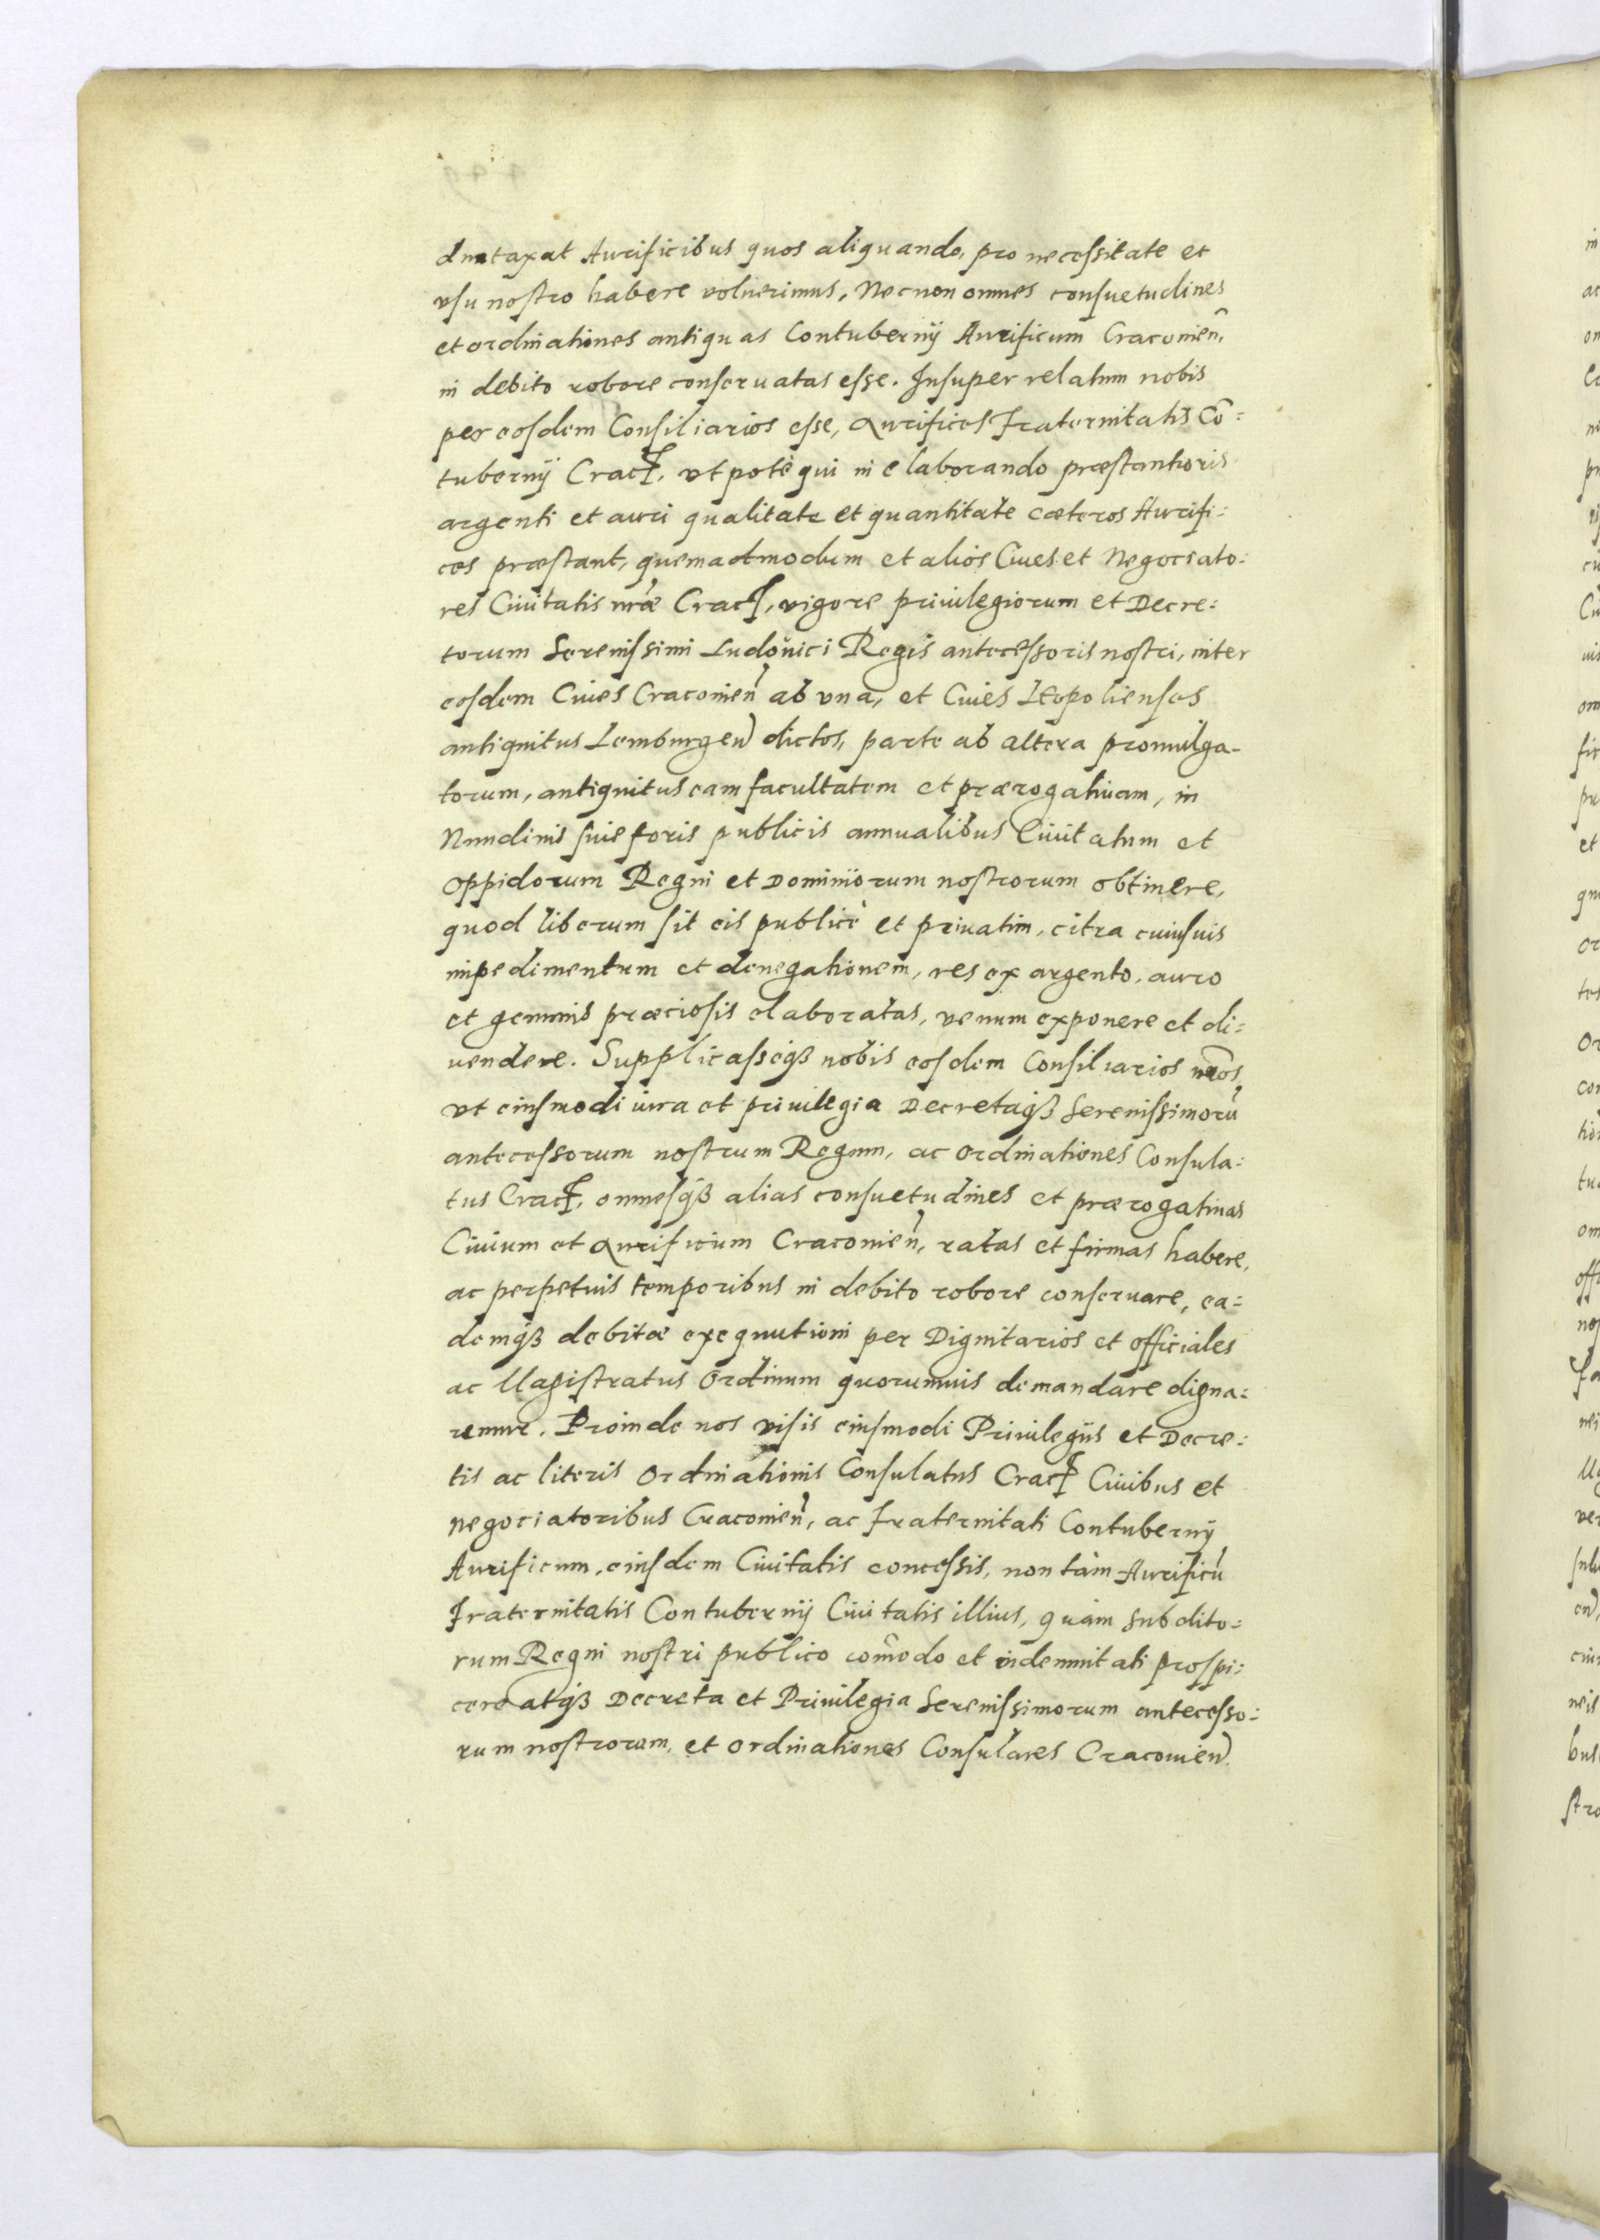 duntaxat Aurificibus quos aliquando, pro necessitate et
vsu nostro habere voluerimus, Necnon omnes consuetudines
et ordinationes antiquas Contubernij Aurificum Cracouien̄,
in debito robore conseruatas esse. Insuper relatum nobis
per eosdem Consiliarios esse, Aurifices Fraternitatis Cō:
tubernij Crac̄, vtpote qui in elaborando præstantioris
argenti et auri qualitate et quantitate cæteros Aurifi:
ces præstant, quemadmodum et alios Ciues et Negociato:
res Ciuitatis nr̄æ Crac̄, vigore priuilegiorum et Decre:
torum Serenissimi Ludouici Regis antecessoris nostri, inter
eosdem Ciues Cracouien̄ ab vna, et Ciues Leopolienses
antiquitus Lemburgen̄ dictos, parte ab altera promulga-
torum, antiquitus eam facultatem et prærogatiuam, in
Nundinis siue foris publicis annualibus Ciuitatum et
Oppidorum Regni et Dominiorum nostrorum obtinere,
quod liberum sit eis publicè et priuatim, citra cuiusuis
impedimentum et denegationem, res ex argento, auro
et gemmis præciosis elaboratas, venum exponere et di:
uendere. Supplicasseqȝ nobis eosdem Consiliarios nr̄os,
vt eiusmodi iura et priuilegia Decretaqȝ Serenissimorū
antecessorum nostrum Regum, ac Ordinationes Consula:
tus Crac̄, omnesqȝ alias consuetudines et prærogatiuas
Ciuium et Aurificium Cracouien̄, ratas et firmas habere,
ac perpetuis temporibus in debito robore conseruare, ea:
demqȝ debitæ exequutioni per Dignitarios et officiales
ac Magistratus Ordinum quorumuis demandare digna:
remur. Proinde nos visis eiusmodi Priuilegijs et Decre:
tis ac literis Ordinationis Consulatus Crac̄ Ciuibus et
negociatoribus Cracouien̄, ac Fraternitati Contubernij
Aurificum, eiusdem Ciuitatis concessis, non tàm Aurificū
Fraternitatis Contubernij Ciuitatis illius, quàm subdito:
rum Regni nostri publico com̄odo et indemnitati prospi:
cere atqȝ Decreta et Priuilegia Serenissimorum antecesso:
rum nostrorum, et ordinationes Consulares Cracouien̄.